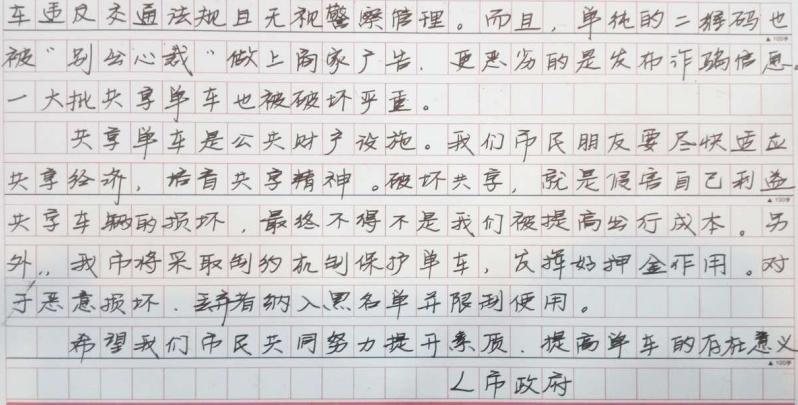 车违反交通法规且无视警察管理。而且，单纯的二维码也
被“别出心裁”做上商家广告，更恶劣的是发布诈骗信息。
一大批共享单车也被破坏严重。
共享单车是公共财产设施。我们市民朋友要尽快适应
共享经济，培育共享精神。破坏共享，就是侵害自己利益
共享车辆的损坏，最终不得不是我们被提高出行成本。另
外，我市将采取制约机制保护单车，发挥好押金作用。对
于恶意损坏、丢弃者纳入黑名单并限制使用。
希望我们市民共同努力提升素质，提高单车的存在意义
L市政府